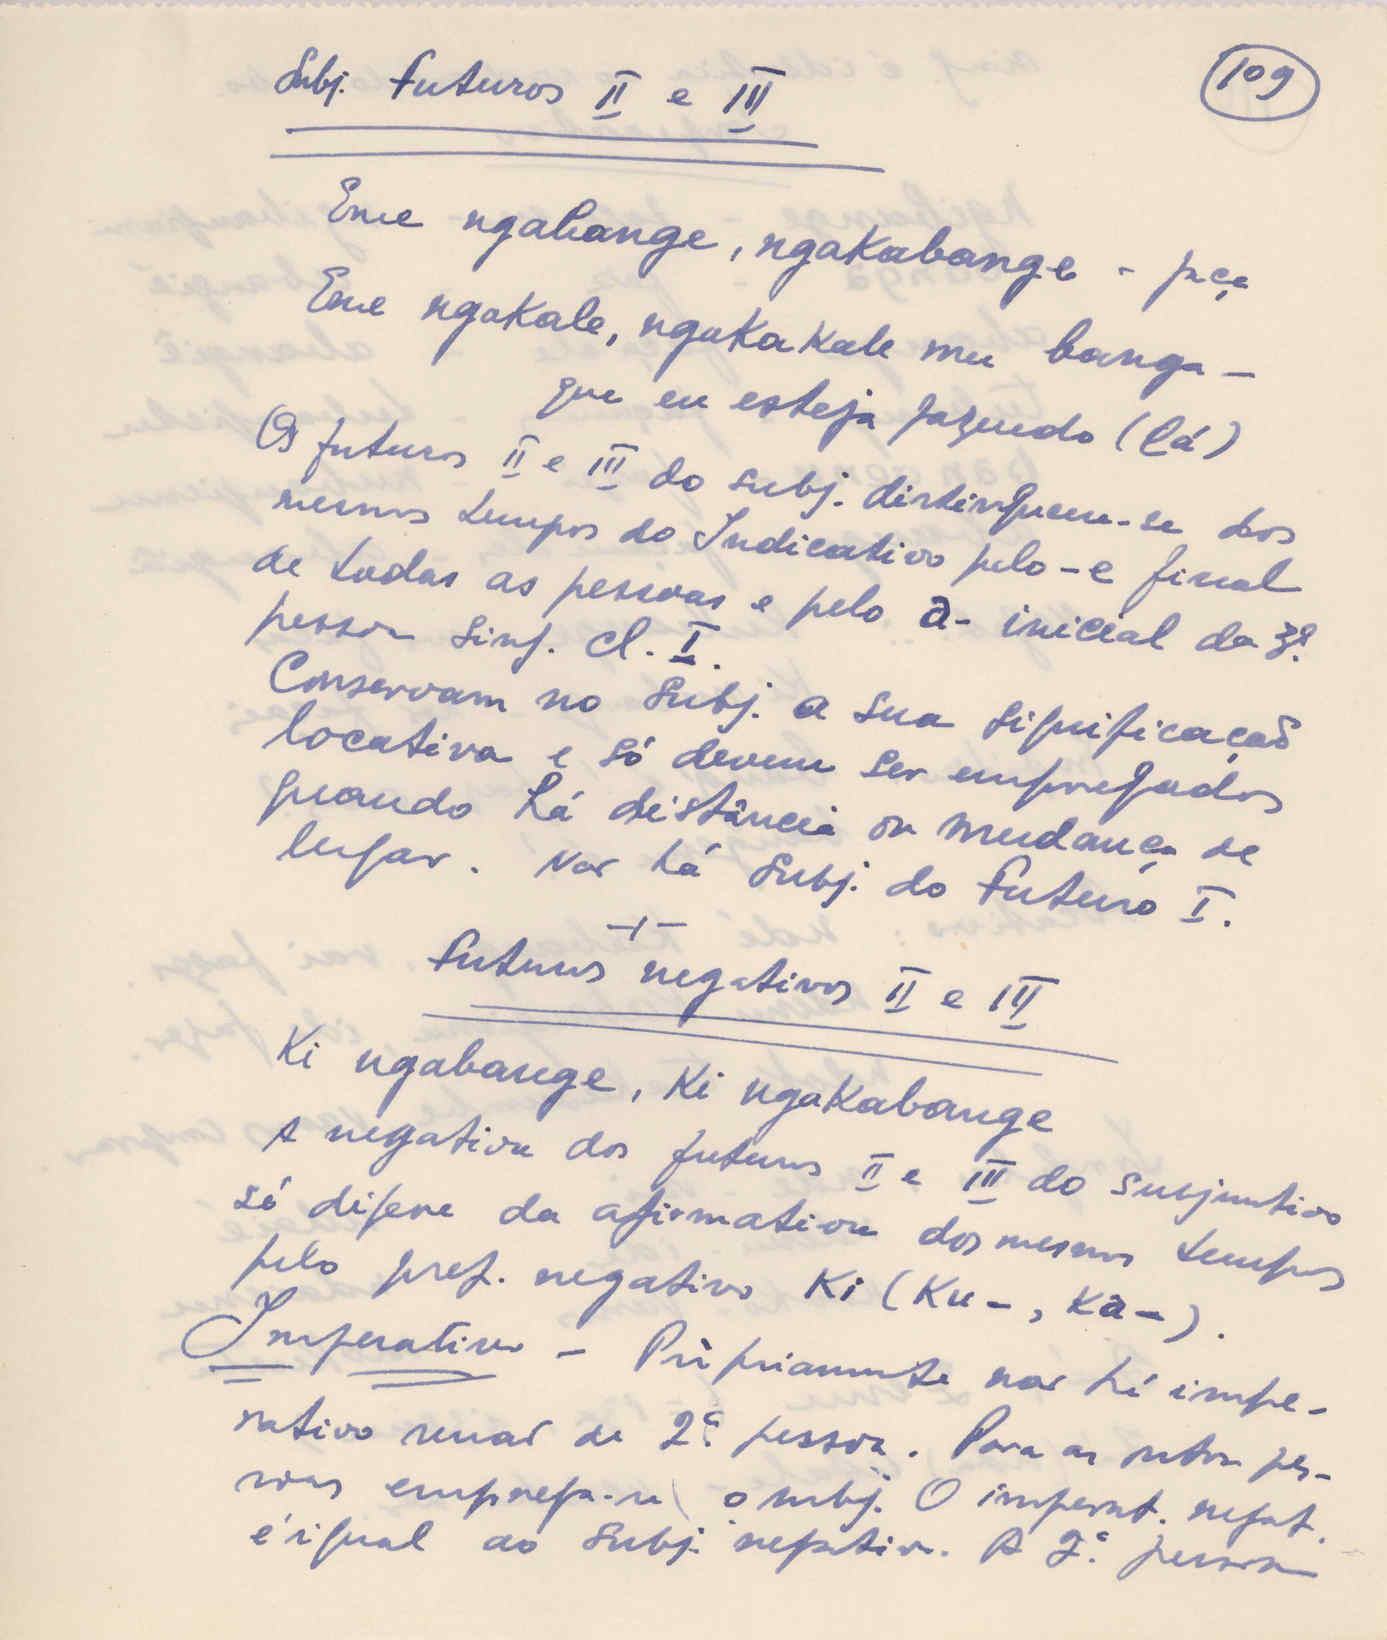 109
Subj. Futuros II e III
Eme ngabange, ngakabange - faça
Eme ngakale, ngakakale mu banga -
que eu esteja fazendo (lá)
Os futuros II e III do subj. distinguem-se dos
mesmos tempos do Indicativo pelo -e final
de todas as pessoas e pelo a- inicial da 3ª.
pessoa sing. cl. I.
Conservam no subj. a sua significação
locativa e só devem ser empregados
quando há distância ou mudança de
lugar. Não há subj. do Futuro I.
Futuros negativos II e III
Ki ngabange, Ki ngakabange
A negativa dos futuros II e III do subjuntivo
só difere da afirmativa dos mesmos tempos
pelo pref. negativo Ki (Ku-, Kà-).
Imperativo - Pròpriamente não há impe-
rativo senão de 2ª. pessoa. Para as outras pes-
soas emprega-se o subj. O imperat. negat.
é igual ao subj. negativo. A 2ª. pessoa